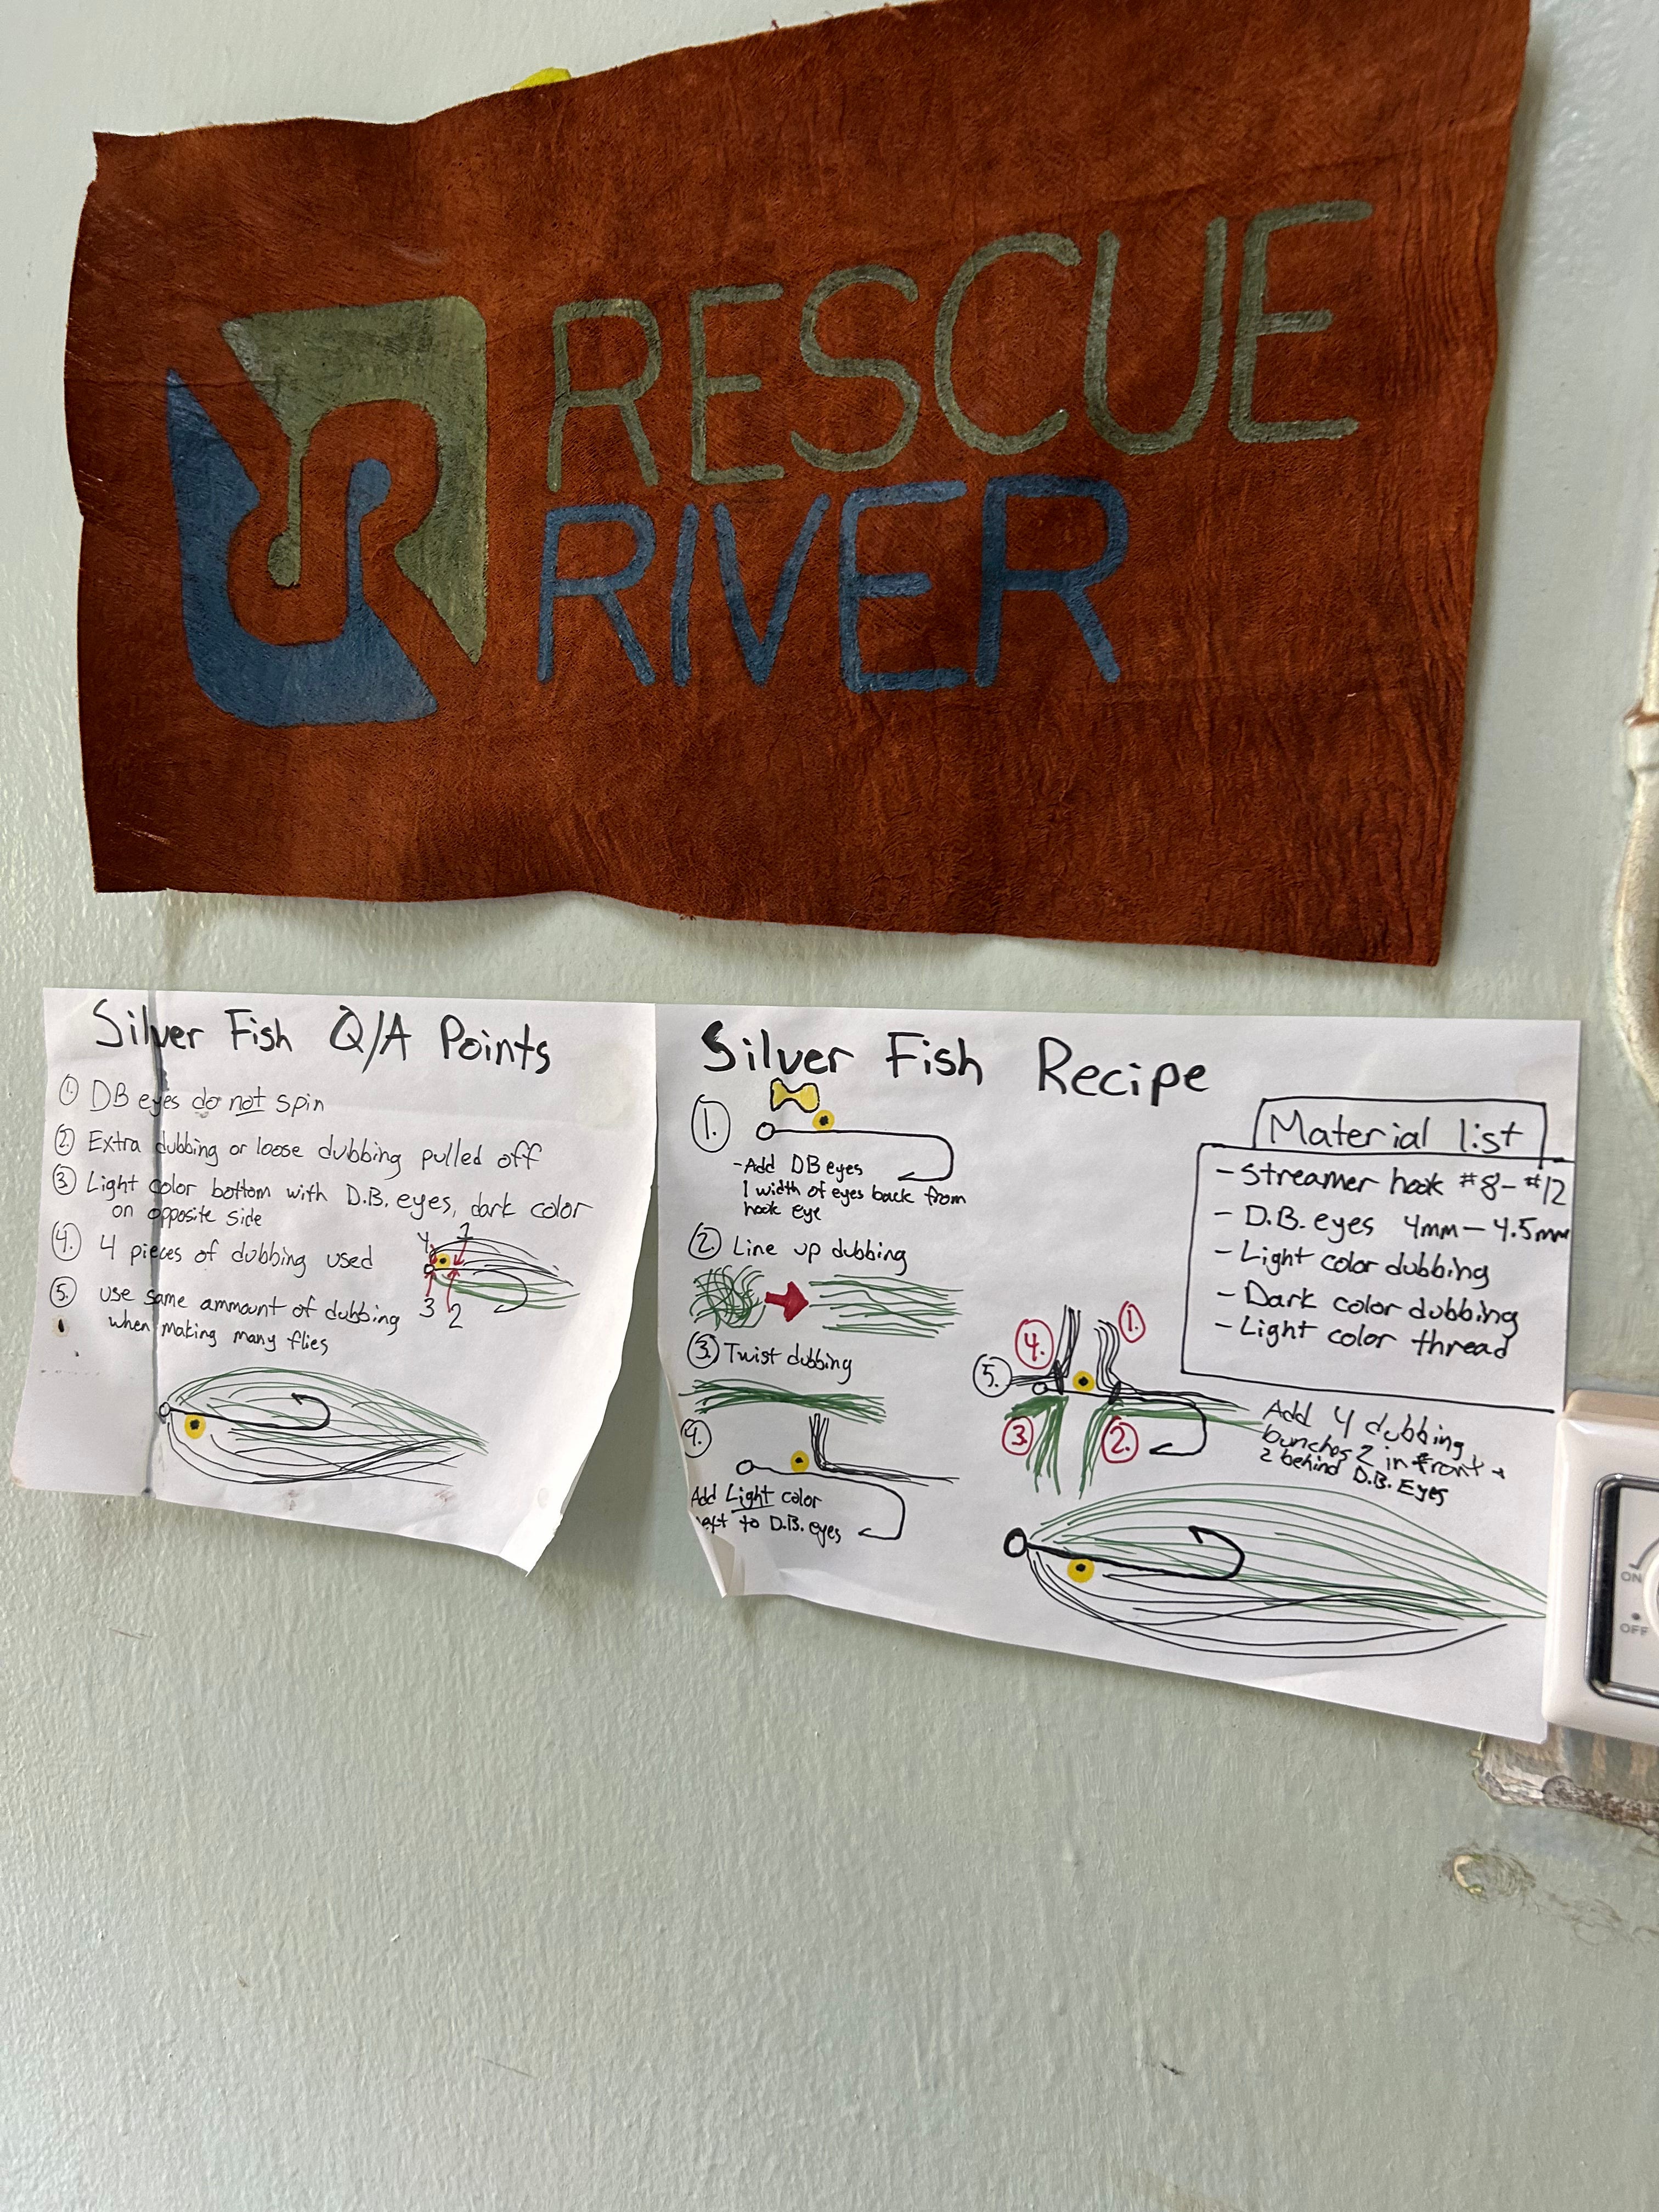 RESCUE
RIVER
Silver Fish Q/A Points
1. DB eyes do not spin
2. Extra dubbing or loose dubbing pulled off
3. Light color bottom with D.B. eyes, dark color
on opposite side
4. 4 pieces of dubbing used
4 1
3 2
5. use same ammount of dubbing
when making many flies
Silver Fish Recipe
1.
-Add DB eyes
1 width of eyes back from
hook eye
2. Line up dubbing
3. Twist dubbing
4.
Add Light color
to D.B. eyes
Material list
- Streamer hook #8-#12
- D.B. eyes 4mm-4.5mm
- Light color dubbing
- Dark color dubbing
- Light color thread
5.
4. 1.
3. 2.
Add 4 dubbing
bunches 2 in front +
2 behind D.B. Eyes
ON
OFF